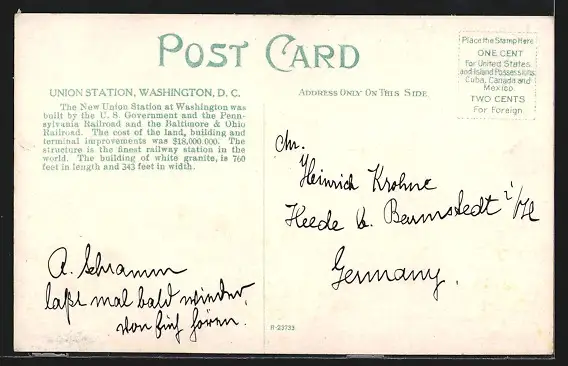 POST CARD
UNION STATION, WASHINGTON, D. C.
The New Union Station at Washington was
built by the U. S. Government and the Penn-
sylvania Railroad and the Baltimore & Ohio
Railroad. The cost of the land, building and
terminal improvements was $18,000,000. The
structure is the finest railway station in the
world. The building of white granite, is 760
feet in length and 343 feet in width.
A. Schramm
laßt mal bald wieder
von sich hören.
R-23733
ADDRESS ONLY ON THIS SIDE
Place the Stamp Here
ONE CENT
For United States
and Island Possessions
Cuba, Canada and
Mexico.
TWO CENTS
For Foreign.
Heinrich Krohne
Heede b. Barmstedt i/H
Germany.